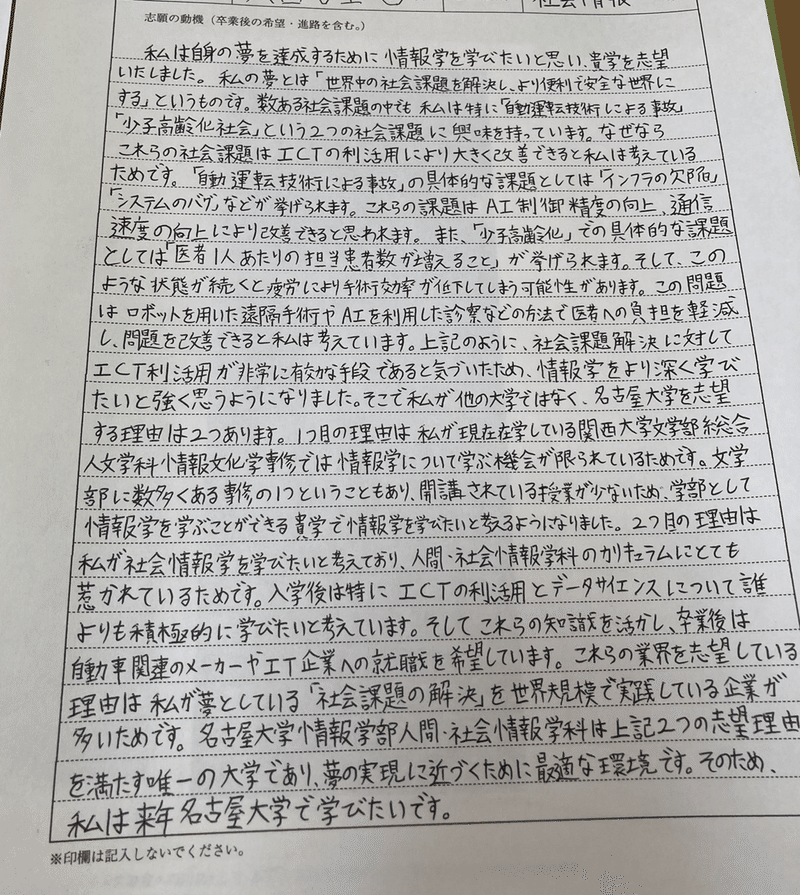 社会情報
志願の動機（卒業後の希望・進路を含む。）
私は自身の夢を達成するために情報学を学びたいと思い、貴学を志望
いたしました。私の夢とは「世界中の社会課題を解決し、より便利で安全な世界に
する」というものです。数ある社会課題の中でも私は特に「自動運転技術による事故」
「少子高齢化社会」という2つの社会課題に興味を持っています。なぜなら
これらの社会課題はICTの利活用により大きく改善できると私は考えている
ためです。「自動運転技術による事故」の具体的な課題としては「インフラの欠陥」
「システムのバグ」などが挙げられます。これらの課題はAI制御精度の向上、通信
速度の向上により改善できると思われます。また、「少子高齢化」での具体的な課題
としては「医者1人あたりの担当患者数が増えること」が挙げられます。そして、この
ような状態が続くと疲労により手術効率が低下してしまう可能性があります。この問題
はロボットを用いた遠隔手術やAIを利用した診察などの方法で医者への負担を軽減
し、問題を改善できると私は考えています。上記のように、社会課題解決に対して
ICT利活用が非常に有効な手段であると気づいたため、情報学をより深く学び
たいと強く思うようになりました。そこで私が他の大学ではなく、名古屋大学を志望
する理由は2つあります。1つ目の理由は私が現在在学している関西大学文学部総合
人文学科情報文化学専修では情報学について学ぶ機会が限られているためです。文学
部に数多くある専修の1つということもあり、開講されている授業が少ないため、学部として
情報学を学ぶことができる貴学で情報学を学びたいと考えるようになりました。2つ目の理由は
私が社会情報学を学びたいと考えており、人間・社会情報学科のカリキュラムにとても
惹かれているためです。入学後は特にICTの利活用とデータサイエンスについて誰
よりも積極的に学びたいと考えています。そしてこれらの知識を活かし、卒業後は
自動車関連のメーカーやIT企業への就職を希望しています。これらの業界を志望している
理由は私が夢としている「社会課題の解決」を世界規模で実践している企業が
多いためです。名古屋大学情報学部人間・社会情報学科は上記2つの志望理由
を満たす唯一の大学であり、夢の実現に近づくために最適な環境です。そのため、
私は来年名古屋大学で学びたいです。
※印欄は記入しないでください。